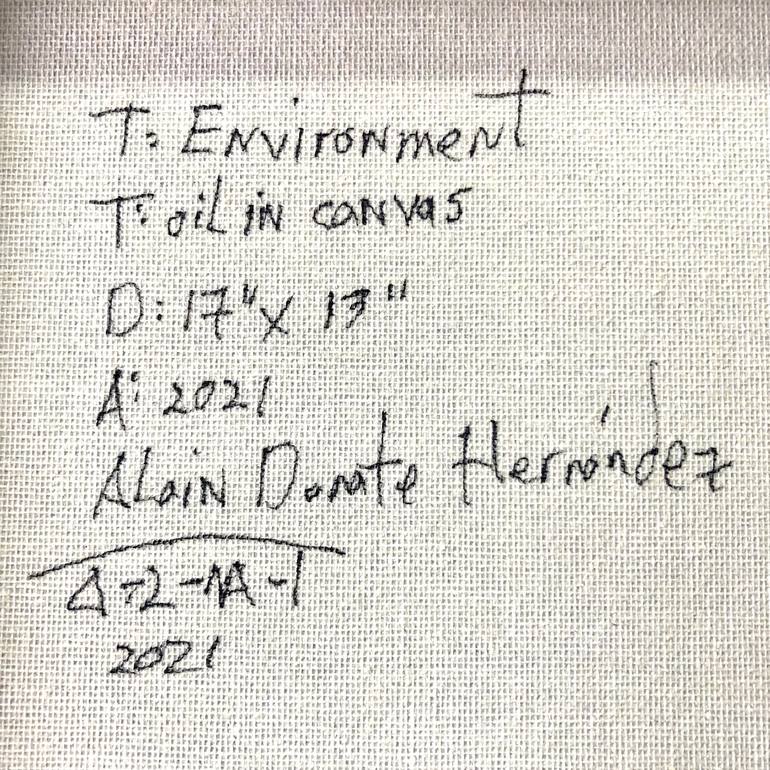 T: Environment
T: oil in canvas
D: 17" x 13"
A: 2021
Alain Donate Hernández
2021